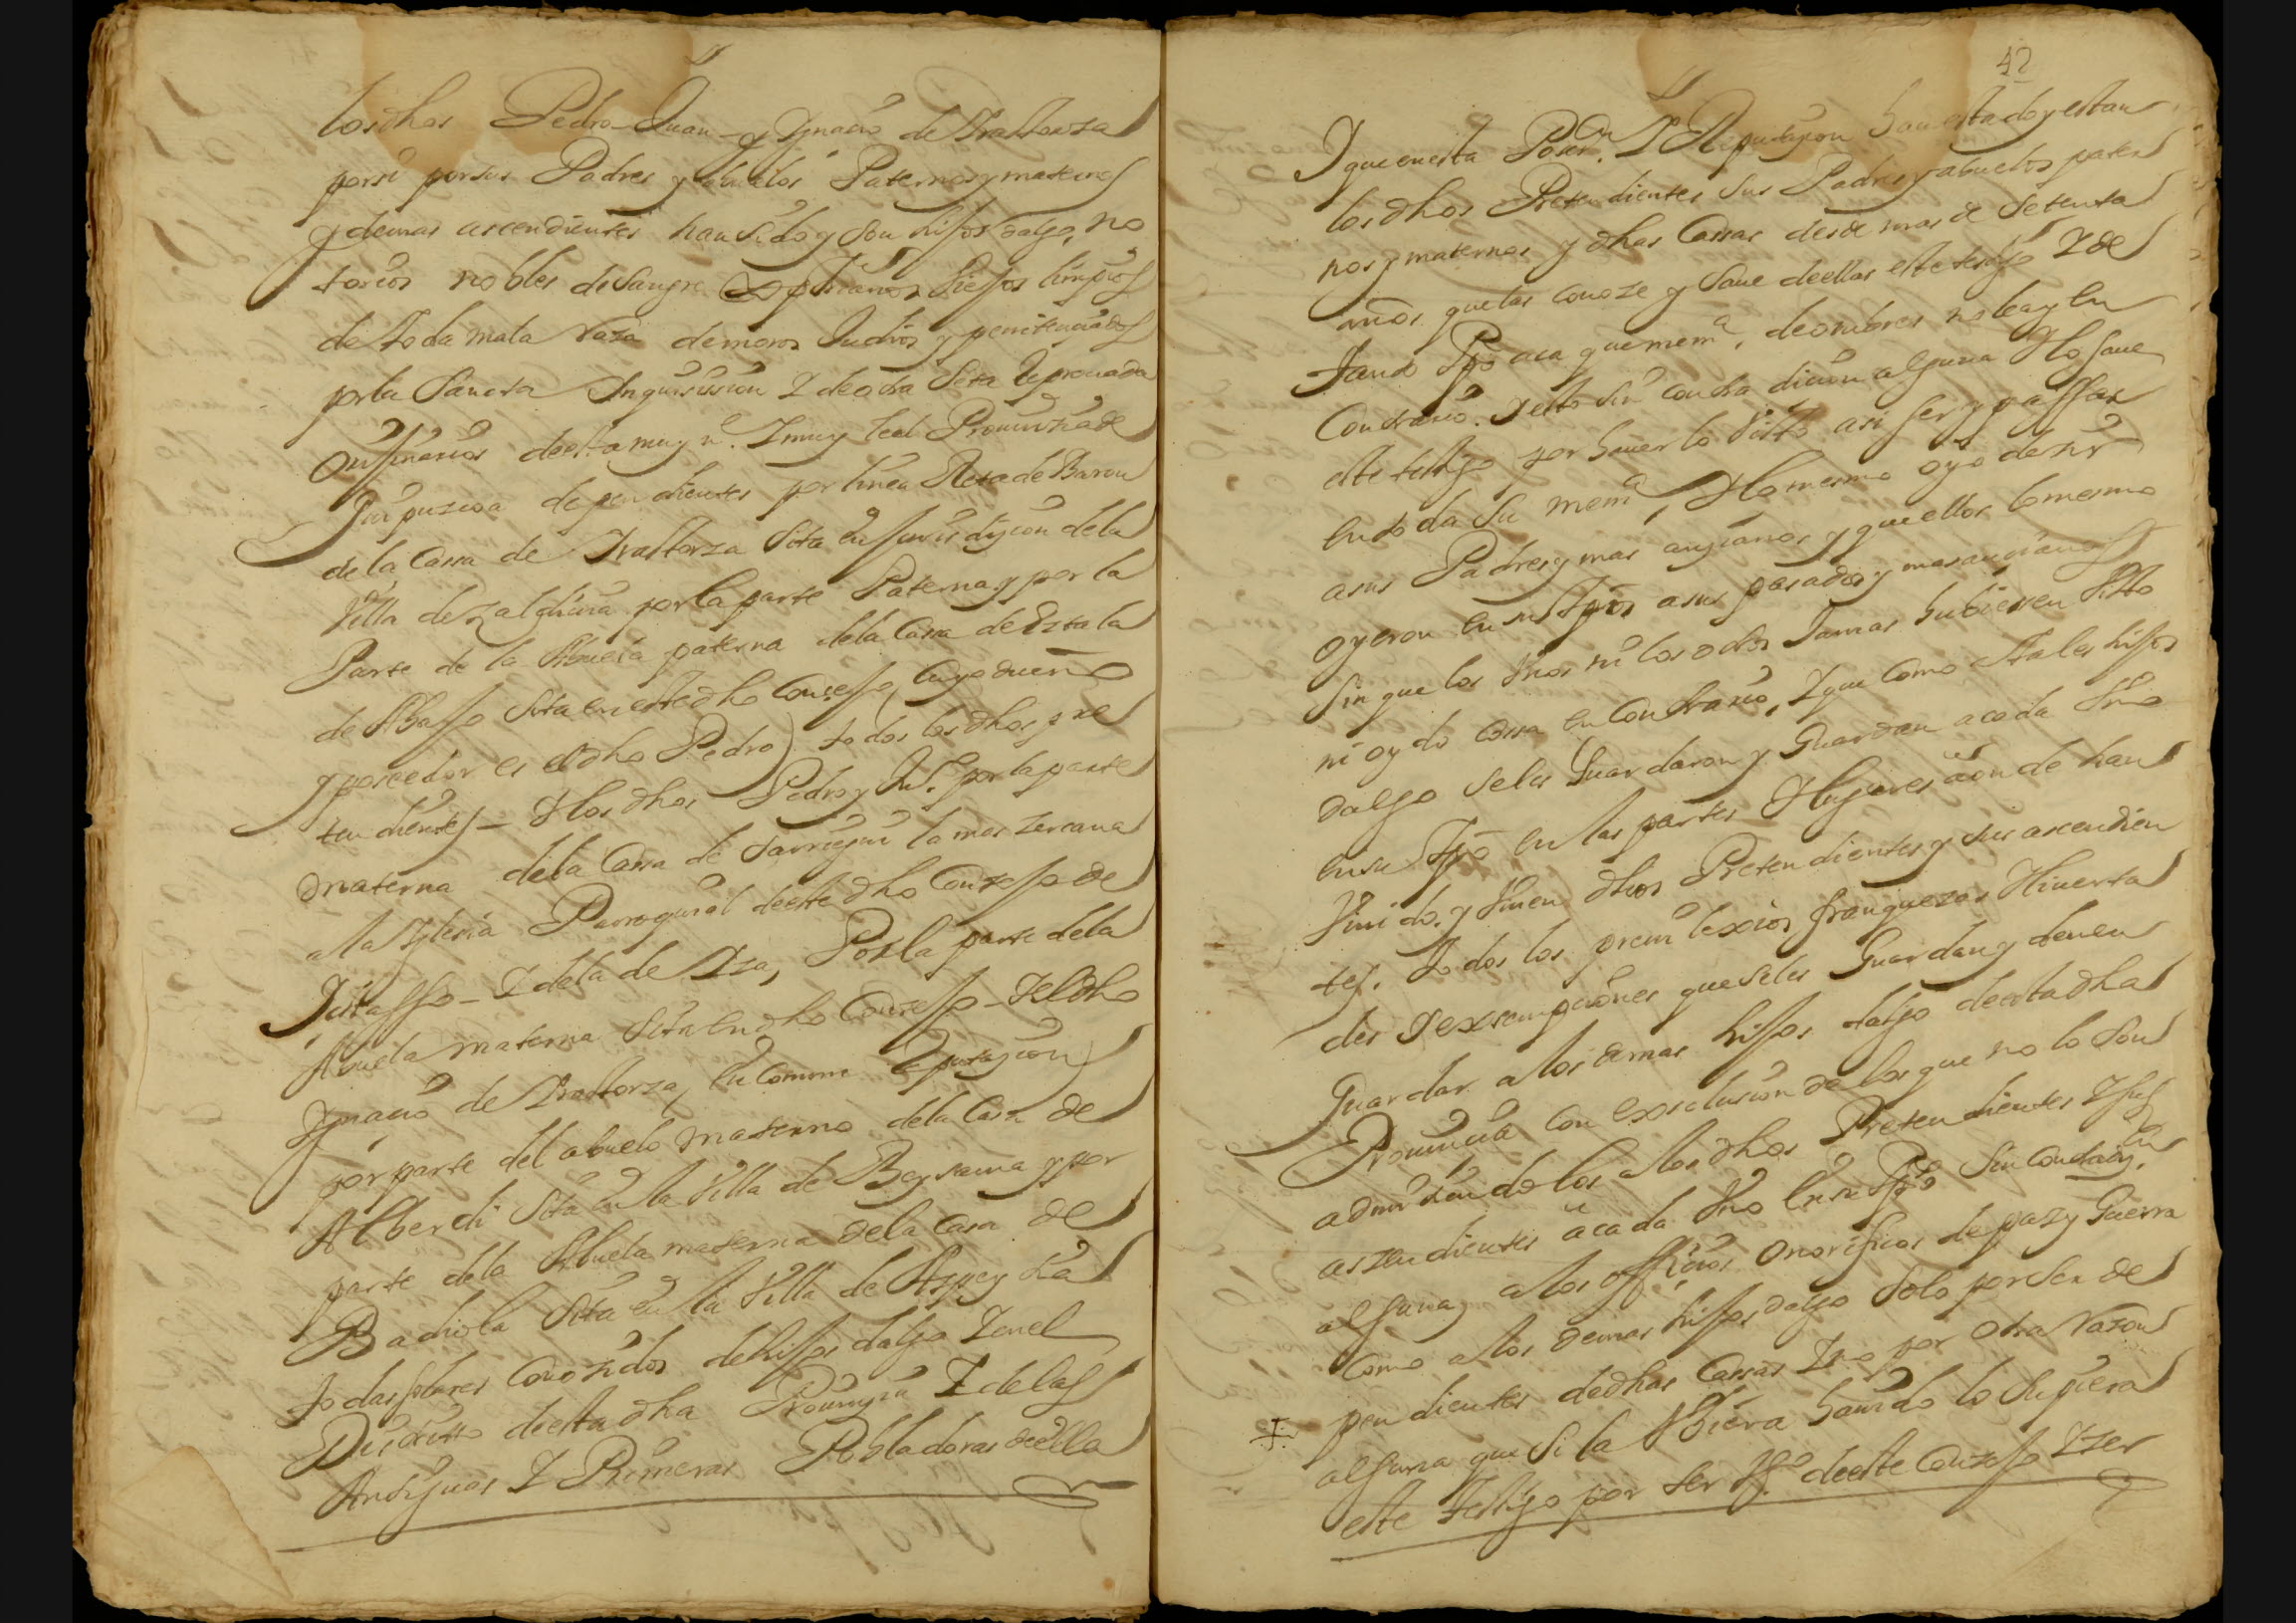 los dhos Pedro - Juan - y Ygnacio de Yraltorza
por si por sus Padres y abuelos Paternos y maternos
y demas ascendientes han sido y son hijos dalgo, no
torios nobles de sangre Xptianos Viejos limpios
de toda mala raza de moros Judios y penitenciados
por la Sancta Inquisission Y de otra Seta Reprouada
Orijinarios de esta muy n. Y muy leal Prouinzia de
Guipuzcoa dependientes por linea Reta de Baron
de la Cassa de Yraltorza Sita en Jurisdizion de la
Villa de Zaldiuia por la parte Paterna y por la
Parte de la Abuela paterna de la Cassa de Eztala
de Abajo Sita en este dho Conzejo, Cuyo dueño
y poseedor es el dho Pedro) todos los dhos pre
tendientes - Y los dhos Pedro y Ju. por la parte
materna de la Cassa de Sarriegui la mas zercana
a la Yglesia Parroquial de este dho Conzejo de
- Y de la de Yza, Por la parte de la
Abuela materna Sita en dho Conzejo - Y el dho
Ygnacio de Yraltorza, en Comun Reputazion)
por parte del abuelo materno de la Cassa de
Alberdi Sita en la Villa de Beyzama y por
parte de la Abuela materna de la Casa de
Badiola Sita en la Villa de Azpeytia
todas solares Conozidos de hijos dalgo Y en el
Distrito de esta dha Prouinzia Y de las
Antiguas Y Primeras Pobladoras de ella
42
Y que en esta Posen. Y Reputazion han estado y estan
los dhos Pretendientes Sus Padres y abuelos pater
nos y maternos y dhas Cassas desde mas de setenta
años que las conoze y Saue de ellas este testigo Y de
tanto tpo aca que mema. de ombres no la ay en
Contrario. Y esto sin contradicion alguna Y lo saue
este testigo por hauerlo Visto asi ser y passar
en toda su mema, Y lo mesmo oyo dezir
a sus Padres y mas anzianos y que ellos lo mesmo
oyeron en sus tpos a sus pasados y mas anzianos
Sin que los Vnos ni los otros Jamas hubiessen Visto
ni oydo cossa en Contrario, Y que como a tales hijos
dalgo se les Guardaron y Guardan a cada Vno
en su tpo en las partes Y lugares donde han
Viuido. y Viuen dhos Pretendientes y sus ascendien
tes. todos los preuilexios franquezas Y liuerta
des Y exsempciones que se les Guardan y deuen
Guardar a los demas hijos dalgo de esta dha
Prouincia con exsclusion de los que no lo son
admitiendolos a los dhos Pretendientes Y sus
aszendientes a cada Vno en su tpo Sin Contradizn
alguna a los officios onorificos de paz y Guerra
como a los demas hijos dalgo Solo por ser de
pendientes de dhas Cassas Y no por otra razon
alguna que si la Vbiera hauido lo Supiera
este testigo por ser Vo. de este Conzejo Y ser